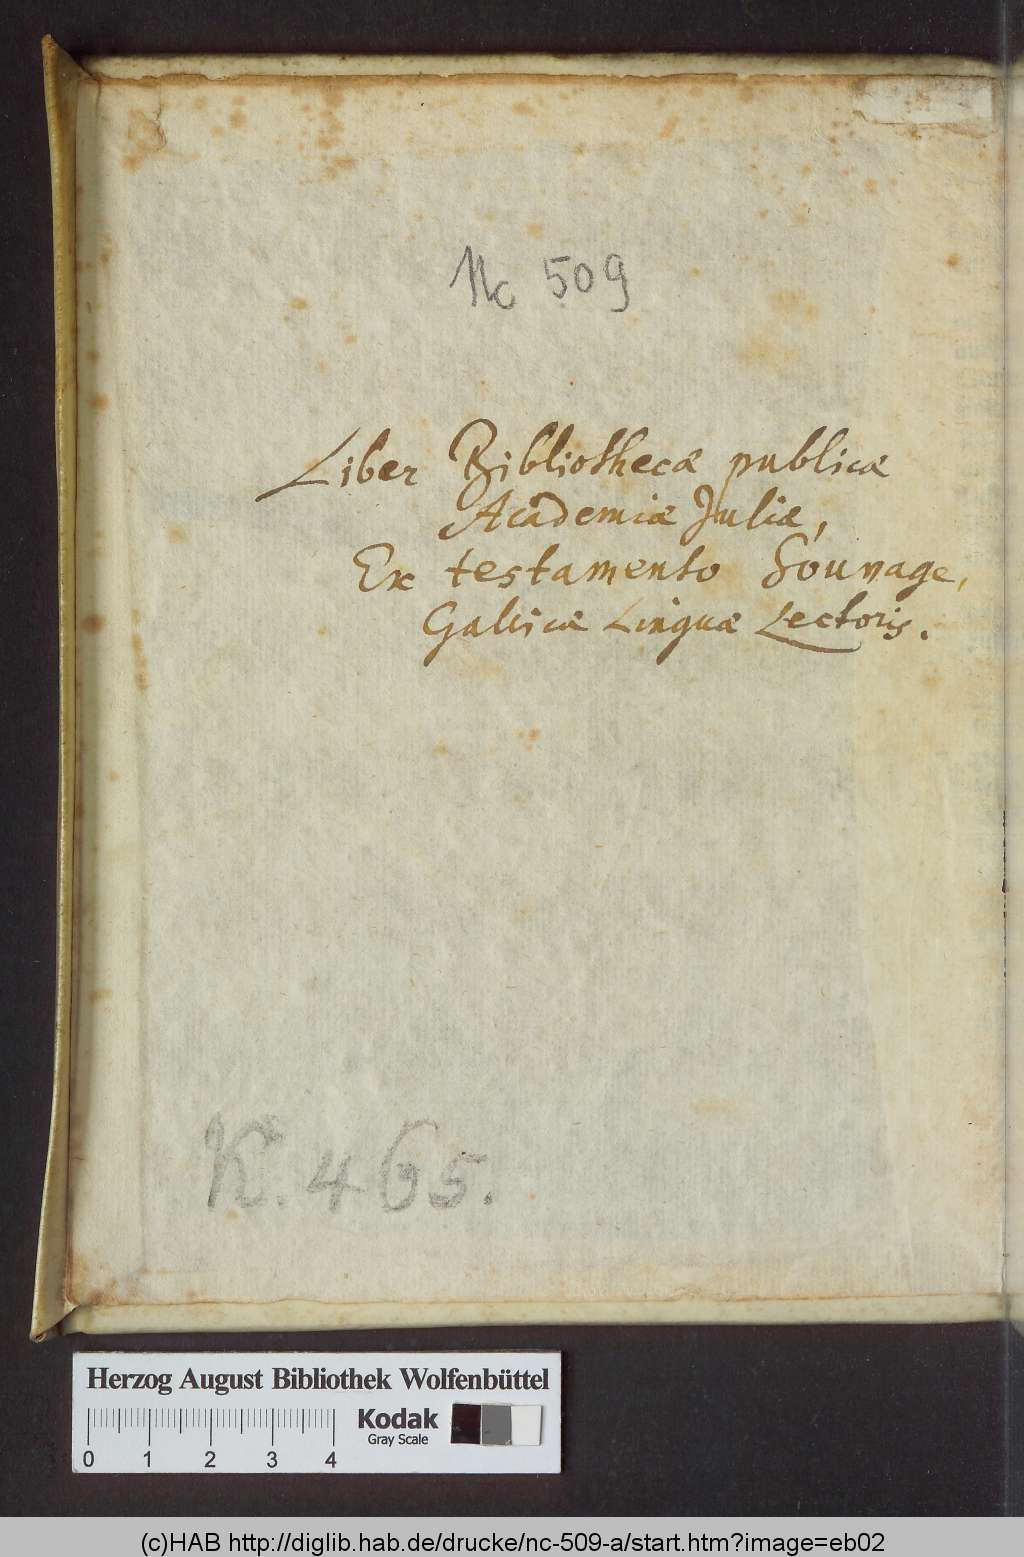 Nc 509
Liber Bibliothecæ publicæ
Academiæ Juliæ,
Ex testamento Souvage,
Gallicæ Linguæ Lectoris.
K. 465.
Herzog August Bibliothek Wolfenbüttel
Kodak
Gray Scale
0 1 2 3 4
(c)HAB http://diglib.hab.de/drucke/nc-509-a/start.htm?image=eb02